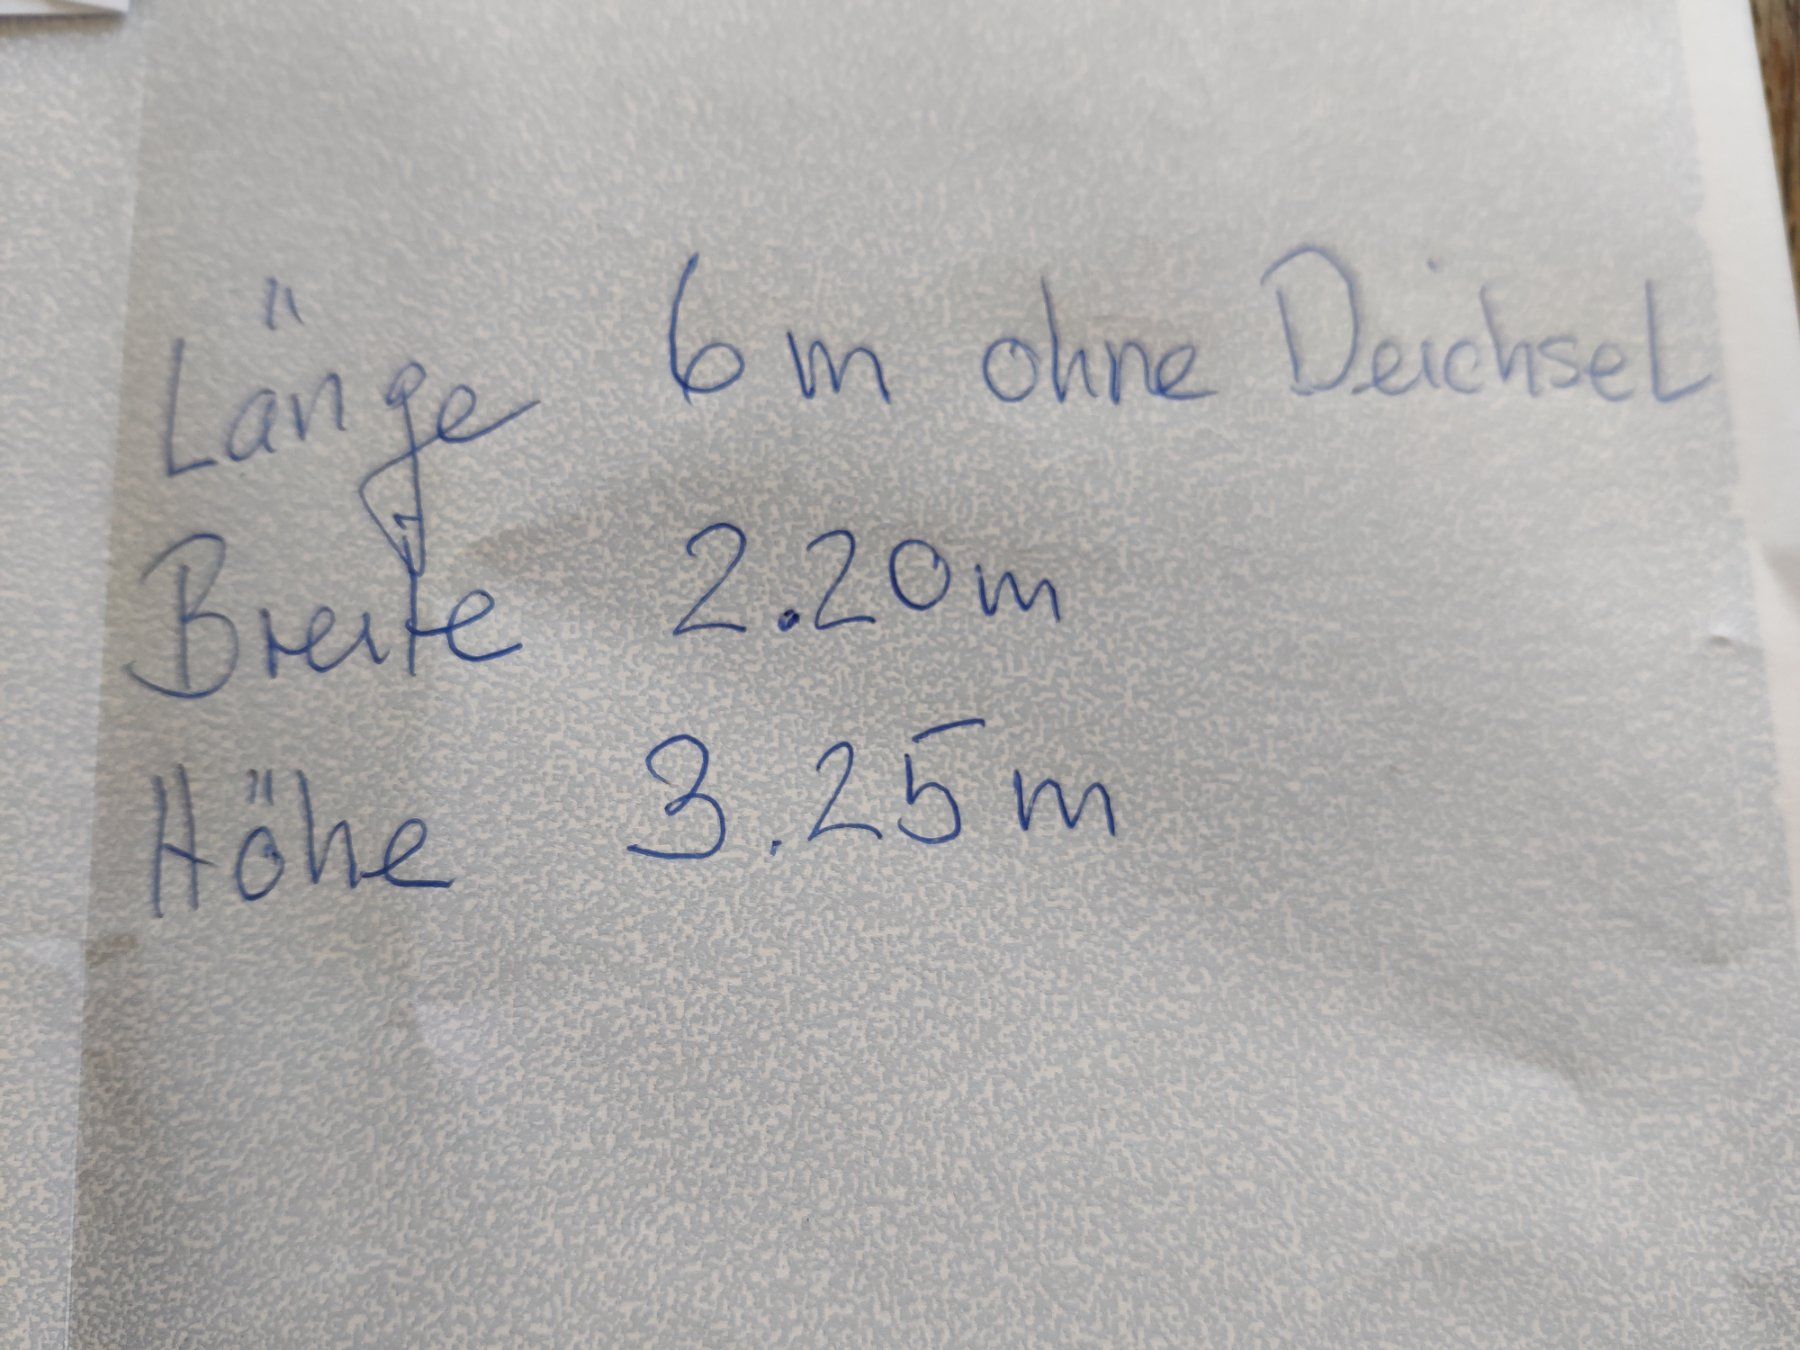 Länge 6 m ohne Deichsel
Breite 2.20m
Höhe 3.25 m